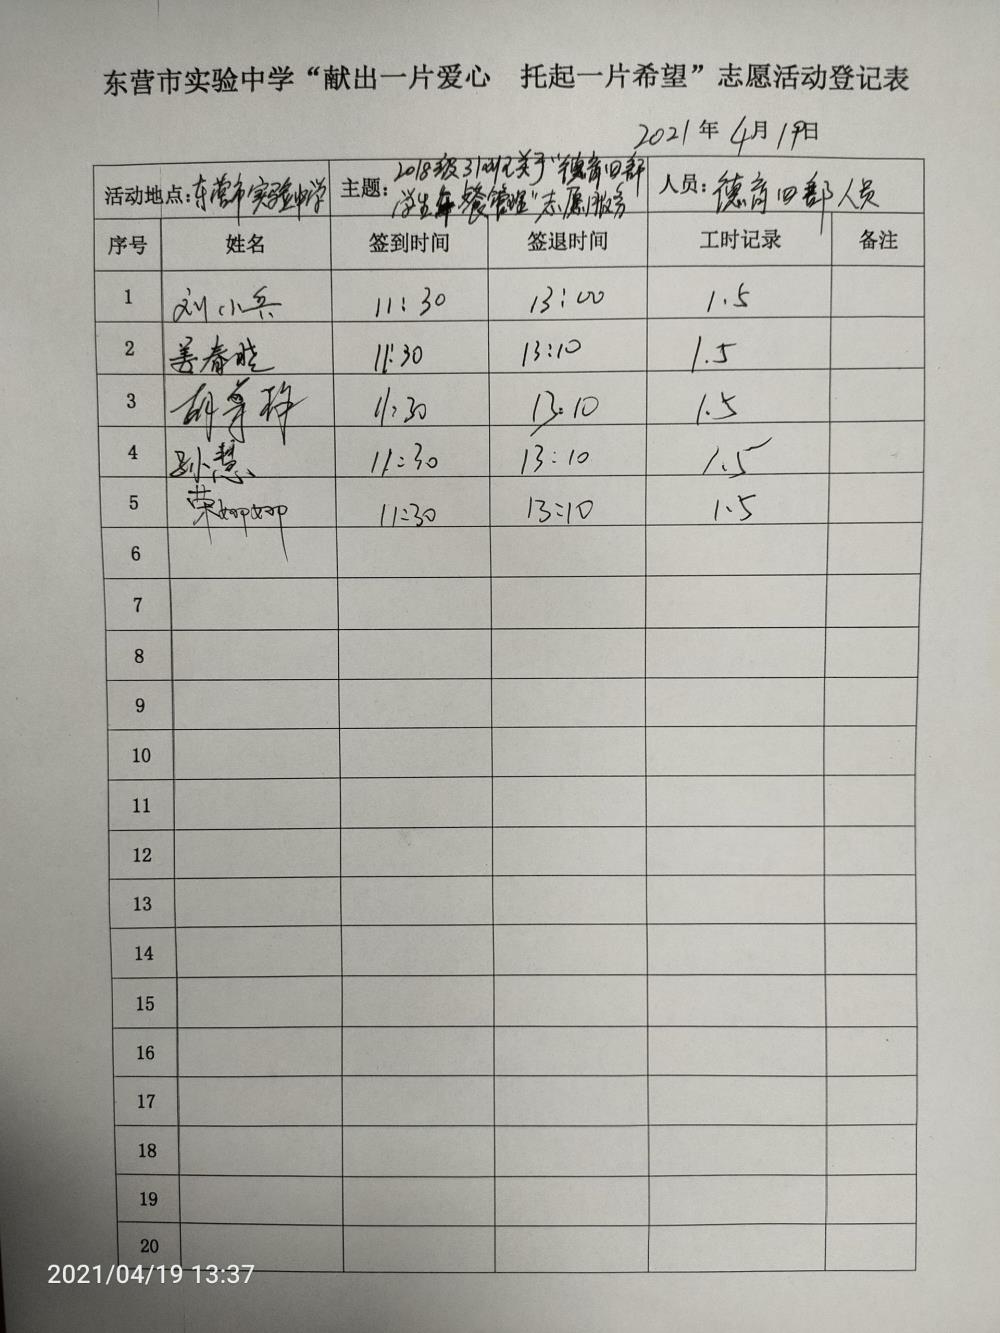 东营市实验中学“献出一片爱心 托起一片希望”志愿活动登记表
2021年4月19日
活动地点：东营市实验中学 主题：2018级31班关于“德育四部学生午餐管理”志愿服务 人员：德育四部人员
序号 姓名 签到时间 签退时间 工时记录 备注
1 刘小兵 11:30 13:00 1.5
2 姜春晓 11:30 13:10 1.5
3 11:30 13:10 1.5
4 孙慧 11:30 13:10 1.5
5 荣 11:30 13:10 1.5
6
7
8
9
10
11
12
13
14
15
16
17
18
19
20
2021/04/19 13:37